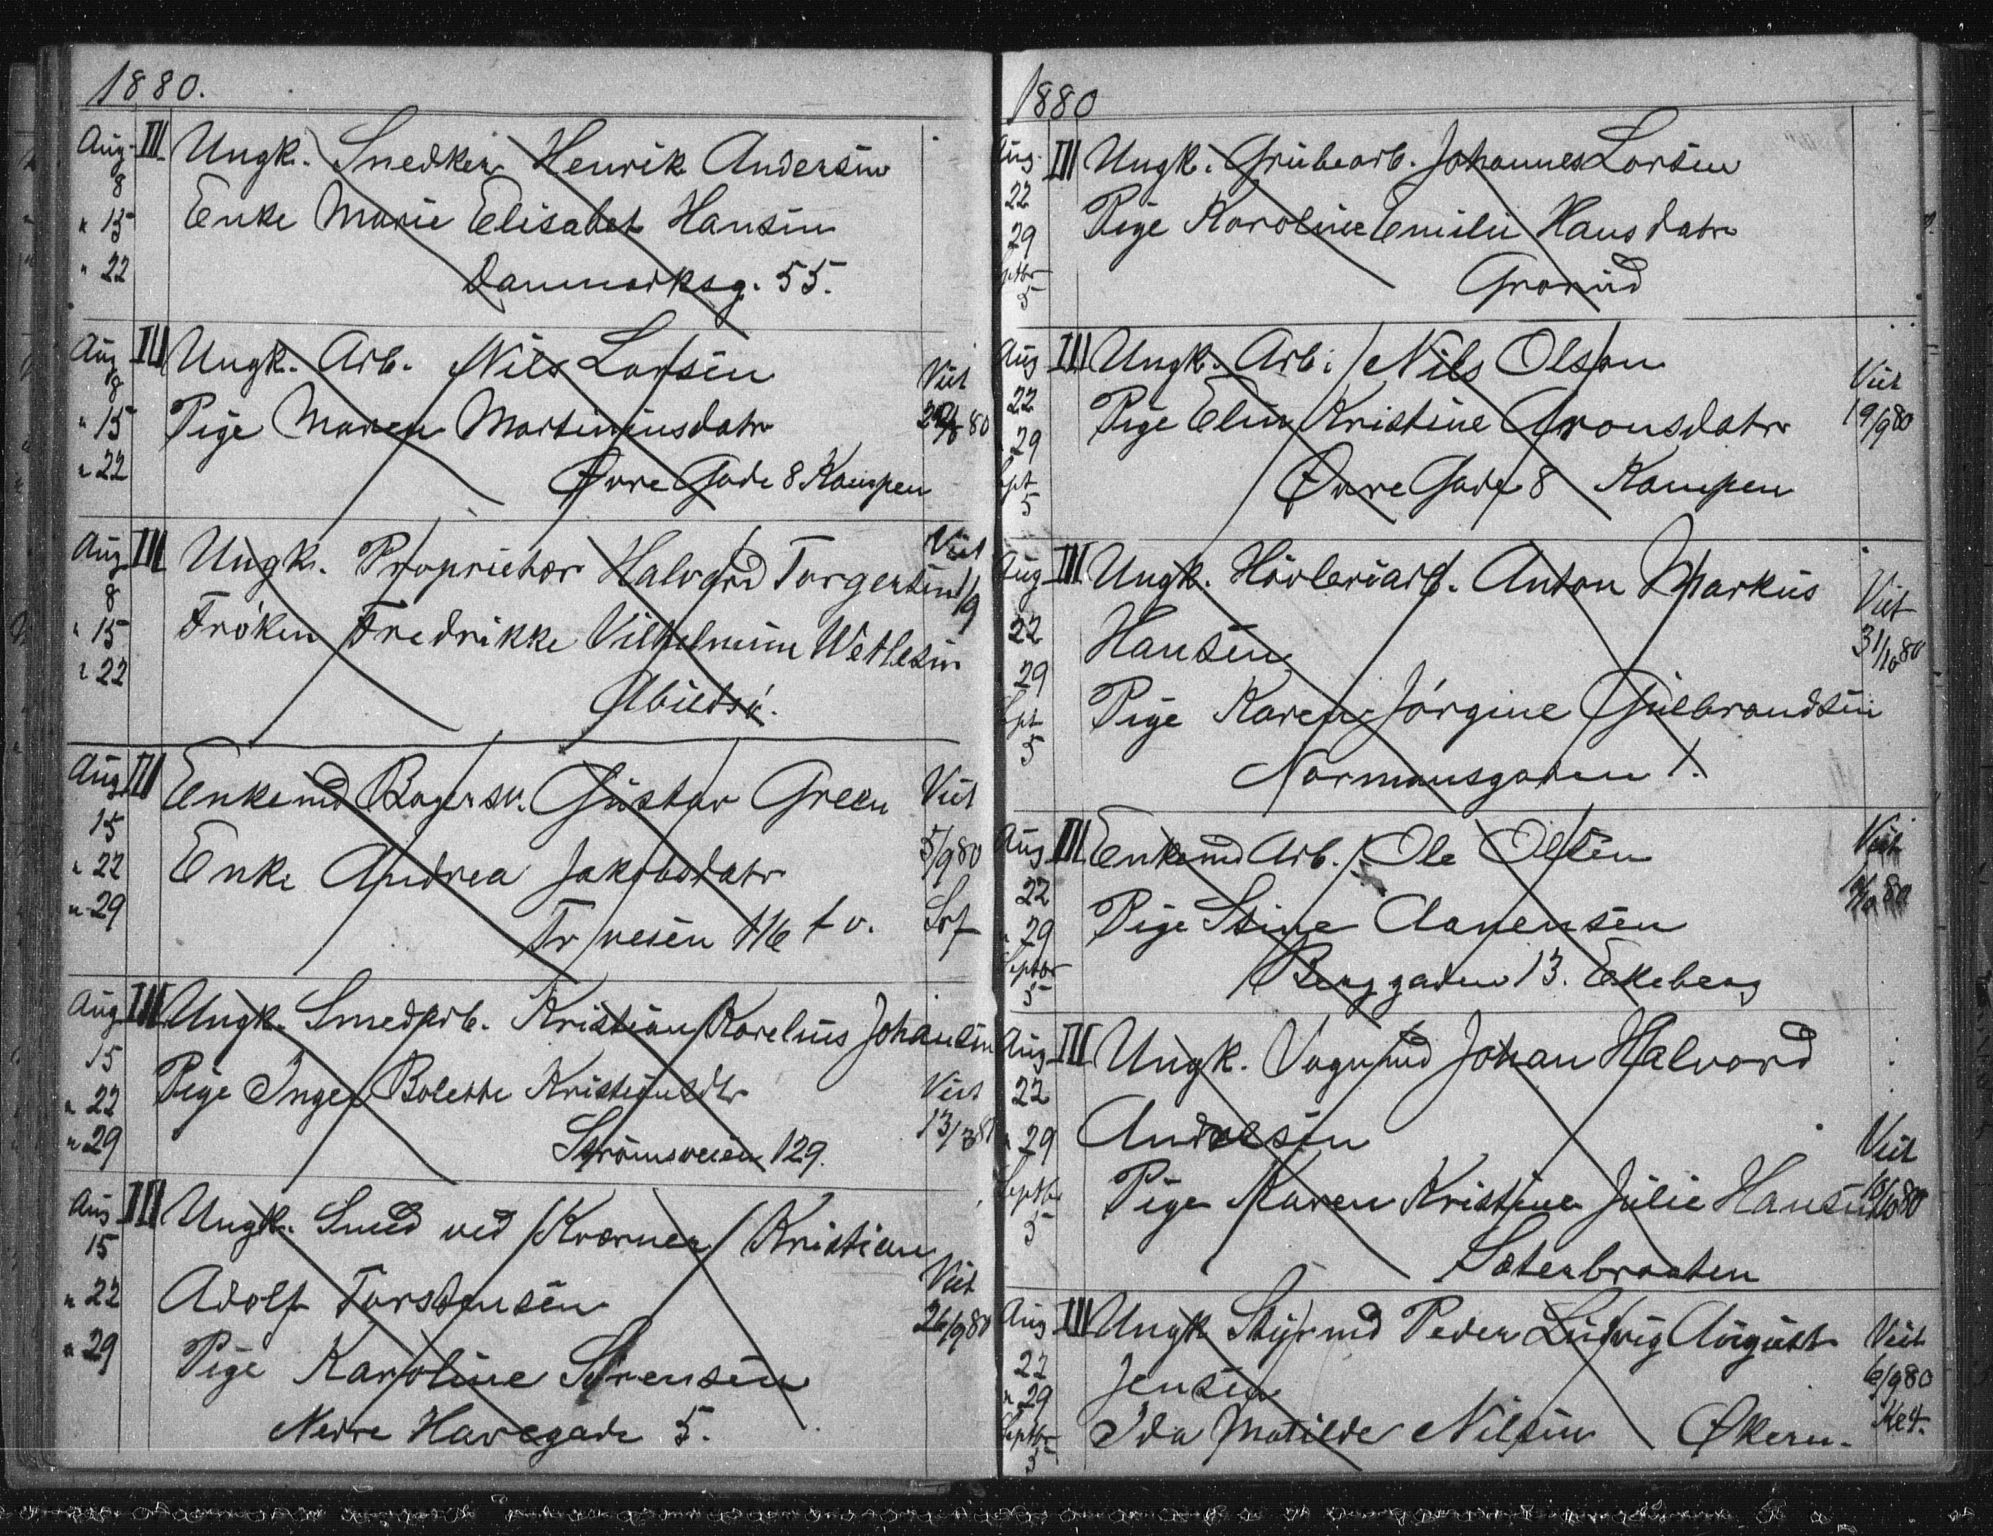 1880.
Aug. III Ungk. Snedker Henrik Andersen
8
" 15 Enke Marie Elisabet Hansen
" 22 Danmarksg. 55.
Aug III Ungk. Arb. Nils Larsen Viet
8
" 15 Pige Maren Martiniusdatr 80
" 22 Øvre Gade 8 Kampen
Aug III Ungk. Proprietær Halvord Torgersen Viet 1/9
8
" 15 Frøken Fredrikke Vilhelmine Wetlesen
" 22 Abildsø.
Aug III Enkemd Bagersv. Gustav Green Viet
15 5/9 80
" 22 Enke Andrea Jakobsdatr
" 29 Tr vesen 116 f v.
Aug III Ungk. Smedarb. Kristian Karelius Johansen
15
" 22 Pige Inger Bolette Kristiansdtr Viet
" 29 Strømsveien 129.
Aug III Ungk. Smed ved Kværner Kristian
15
" 22 Adolf Torstensen Viet 26/9 80
" 29 Pige Karoline Sørensen
Nedre Havegade 5.
1880
Aug. III Ungk. Grubearb. Johannes Larsen
22 Pige Karoline Emilie Hansdatr
29
5 Grorud
Aug III Ungk. Arb. Nils Olsen Viet
22 Pige Elin Kristine Aronsdatr 19/9 80
29
Sept 5 Øvre Gade 8 Kampen
Aug III Ungk. Høvleriarb. Anton Markus Viet
22 Hansen 31/10 80
29
Sept Pige Karen Jørgine Gulbrandsen
5 Normansgaden 1.
Aug III Enkemd Arb. Ole Olsen Viet
22
" 29 Pige Stine Aanensen
Septbr
5 Berggaden 13. Ekeberg
Aug III Ungk. Vognmd Johan Halvord
22
" 29 Andersen Viet
Septbr Pige Karen Kristine Julie Hansen 10/10 80
5 Sæterbraaten
Aug III Ungk Styrmd Peder Ludvig August Viet
22 Jensen 6/9 80
" 29
Septbr Ida Matilde Nilsen Økern. Kat.
5